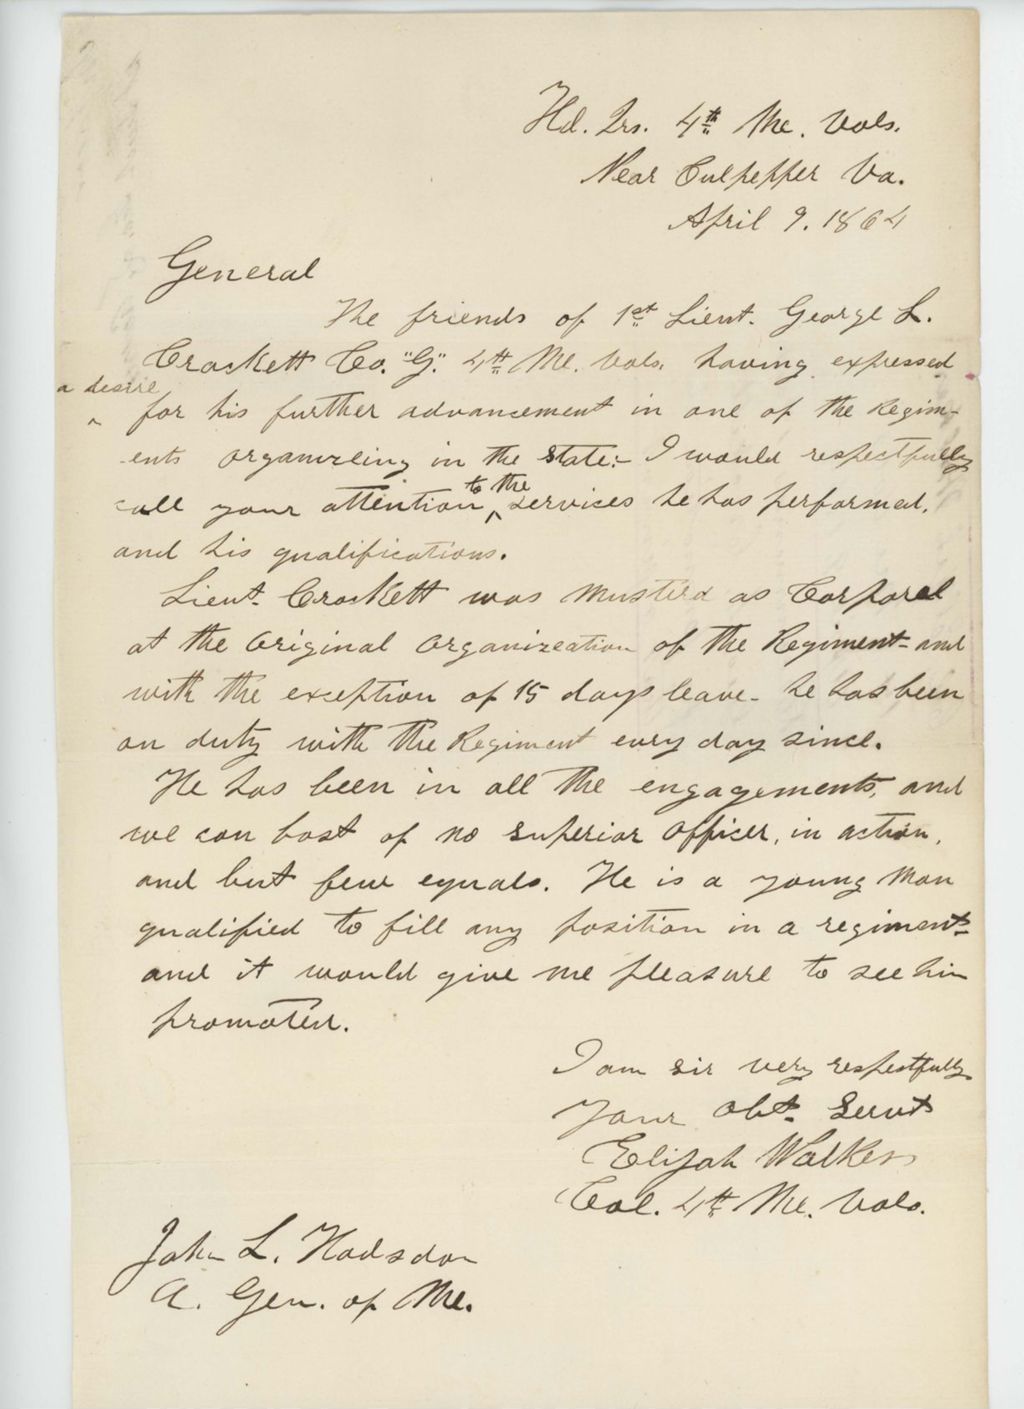 Hd. Qrs. 4th Me. Vols.
Near Culpepper Va.
April 9. 1864
General
The friends of 1st Lieut. George L.
Crockett Co. "G." 4th Me. Vols. having expressed
a desire
^ for his further advancement in one of the Regim-
ents organizeing in the state:- I would respectfully
call your attention ^ to the services he has performed,
and his qualifications.
Lieut. Crockett was musterd as Corporal
at the original organization of the Regiment - and
with the exception of 15 days leave - he has been
on duty with the Regiment every day since.
He has been in all the engagements, and
we can bost of no superior officer, in action,
and but few equals. He is a young man
qualified to fill any position in a regiment -
and it would give me pleasure to see him
promoted.
I am sir very respectfully
Your Obt. Servt
Elijah Walker
Col. 4th Me. Vols.
John L. Hodsdon
A. Gen. of Me.